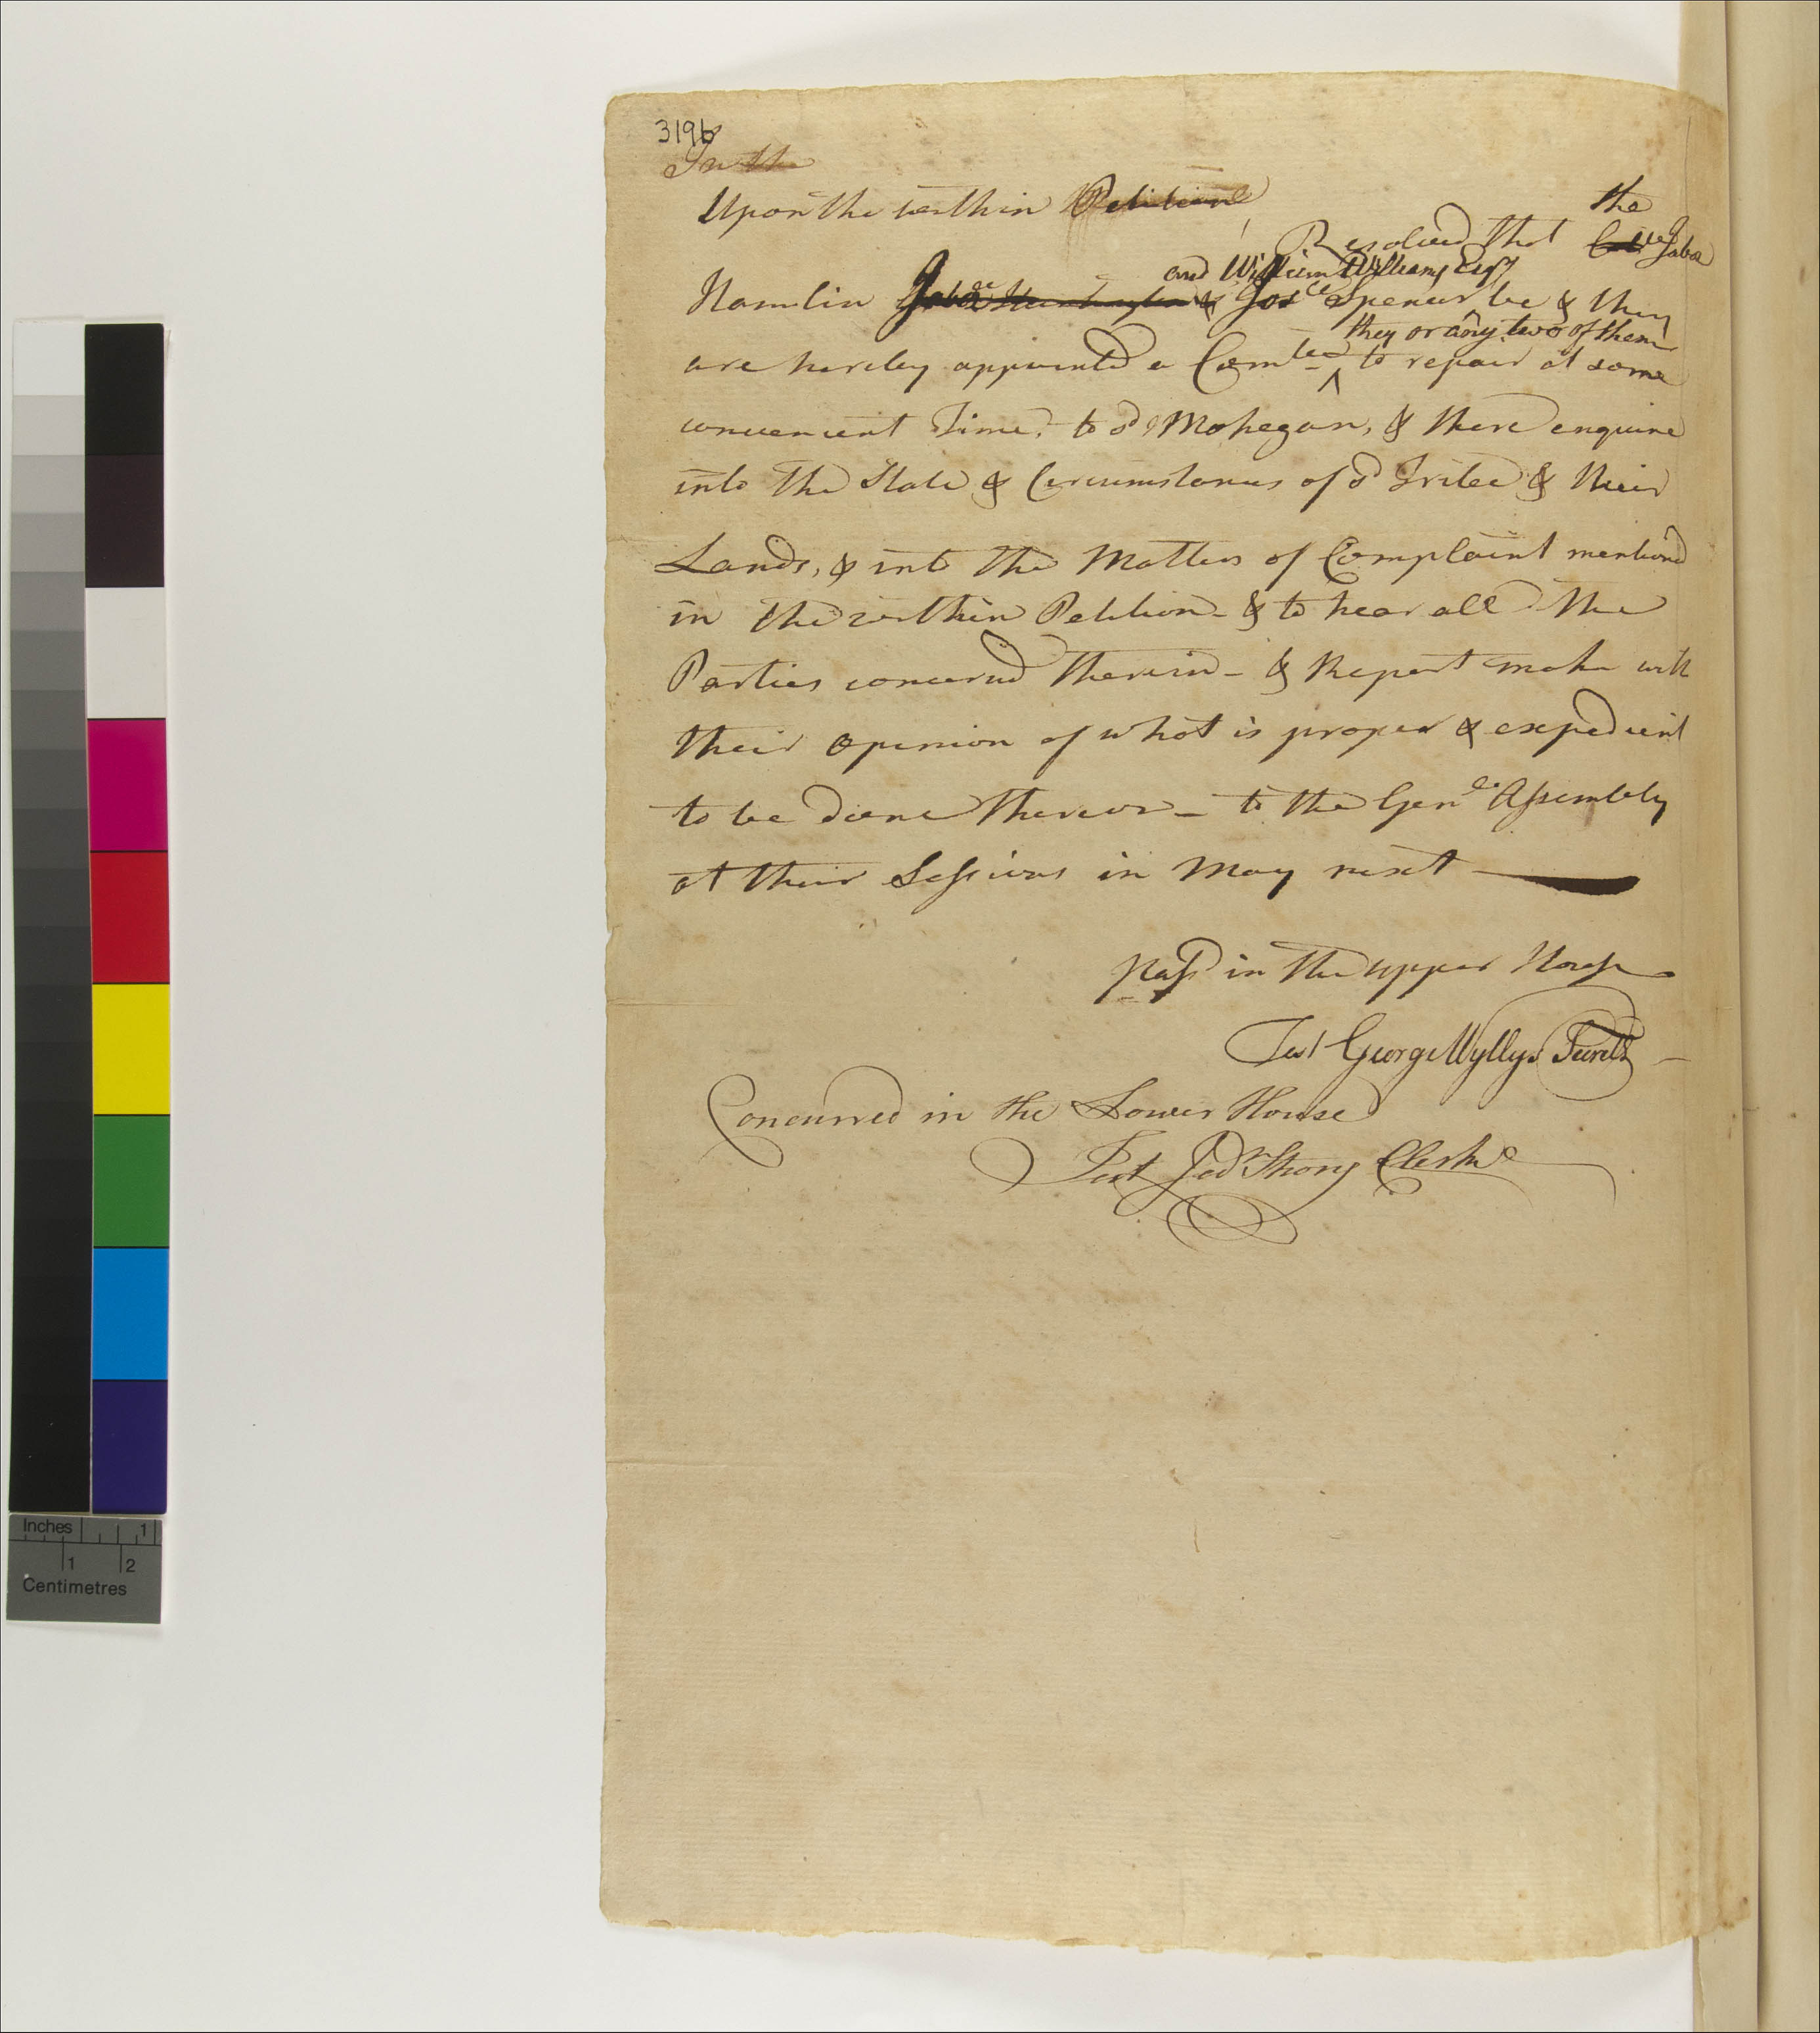 319b
In the
Upon the within Petition
the
Resolved that Col Jabez
and William Williams Esqr
Hamlin Jabez Huntington & Jos Spencer be & they
they or any two of them
are hereby appointed a Comtee ^ to repair at some
convenient Time to sd Mohegan, & there enquire
into the State & Circumstances of sd Tribe & their
Lands, & into the Matters of Complaint mentiond
in the within Petition - & to hear all the
Parties concernd therein - & Report make with
their Opinion of what is proper & expedient
to be done thereon - to the Genll Assembly
at their Sessions in May next
Passd in the upper House
Test George Wyllys Secrety
Concurred in the Lower House
Test Jedn Strong Clerk
Inches 1
1 2
Centimetres